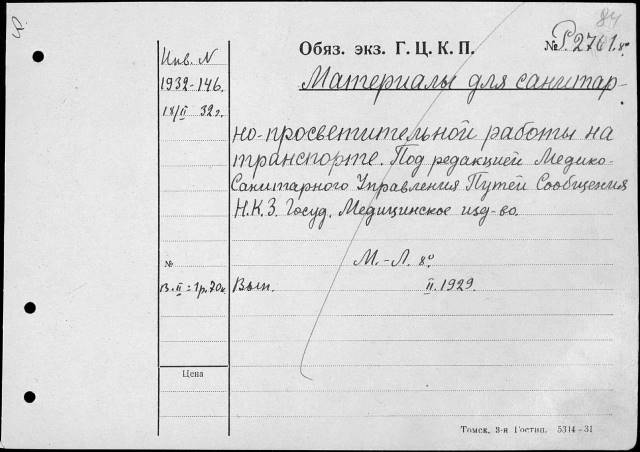 Обяз. экз. Г. Ц. К. П.
№ Р2761. 8°
84
Инв. N
1932-146.
18/II 32 г.
Материалы для санитар-
но-просветительной работы на
транспорте. Под редакцией Медико-
Санитарного Управления Путей Сообщения
Н.К.З. Госуд. Медицинское изд-во.
М.-Л. 8°
№
В. II = 1р. 70к
Вып. II. 1929.
Цена
Томск, 3-я Гостип. 5314-31